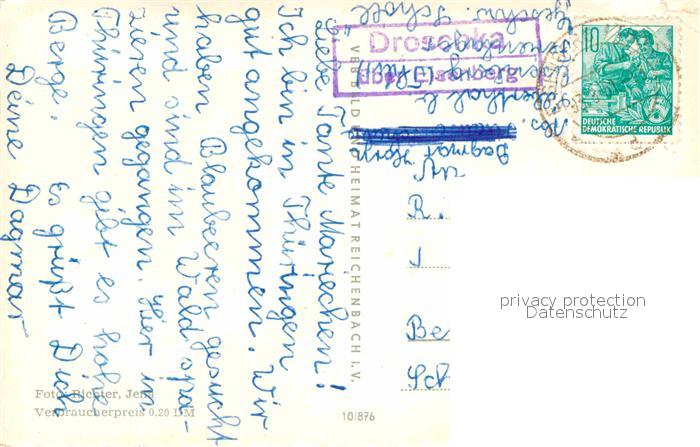 Liebe Tante Mariechen!
Ich bin in Thüringen
gut angekommen. Wir
haben Blaubeeren gesucht
und sind im Wald spa-
zieren gegangen. Hier in
Thüringen gibt es hohe
Berge. Es grüßt Dich
Deine Dagmar
Foto: Richter, Jena
Verbraucherpreis 0,20 DM
10/876
HEIMAT REICHENBACH I. V.
Droschka
über Eisenberg
10
DEUTSCHE
DEMOKRATISCHE REPUBLIK
Abs.
Dagmar
R.
Be
Sch
privacy protection
Datenschutz